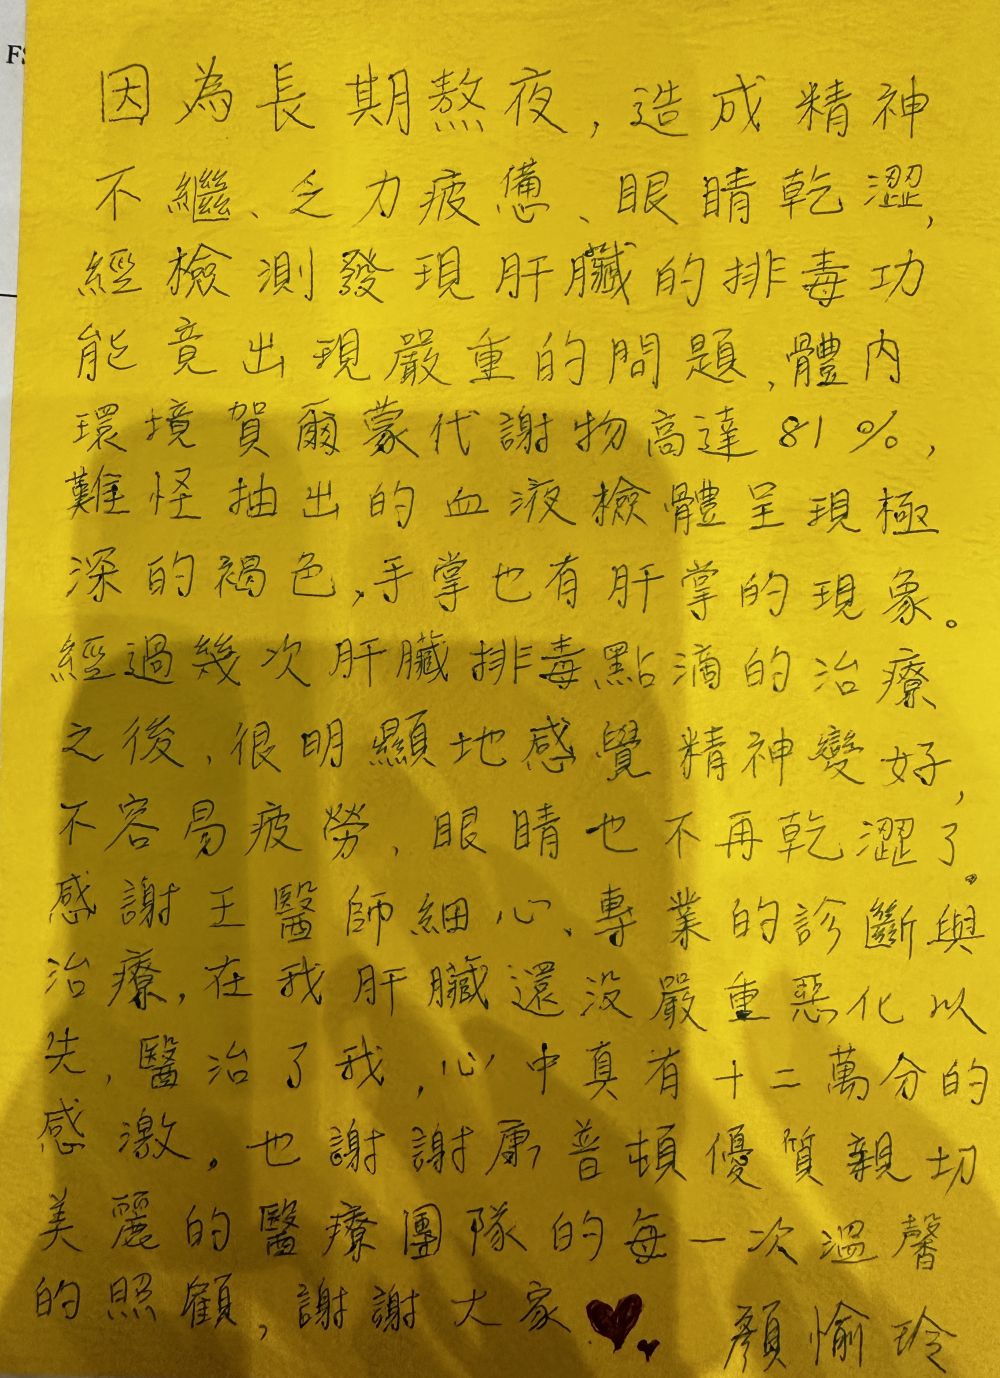 FS
因為長期熬夜,造成精神
不繼、乏力疲憊、眼睛乾澀,
經檢測發現肝臟的排毒功
能竟出現嚴重的問題,體內
環境賀爾蒙代謝物高達81%,
難怪抽出的血液檢體呈現極
深的褐色,手掌也有肝掌的現象。
經過幾次肝臟排毒點滴的治療
之後,很明顯地感覺精神變好,
不容易疲勞、眼睛也不再乾澀了。
感謝王醫師細心、專業的診斷與
治療,在我肝臟還沒嚴重惡化以
先,醫治了我,心中真有十二萬分的
感激。也謝謝康普頓優質親切
美麗的醫療團隊的每一次溫馨
的照顧,謝謝大家
顏愉玲